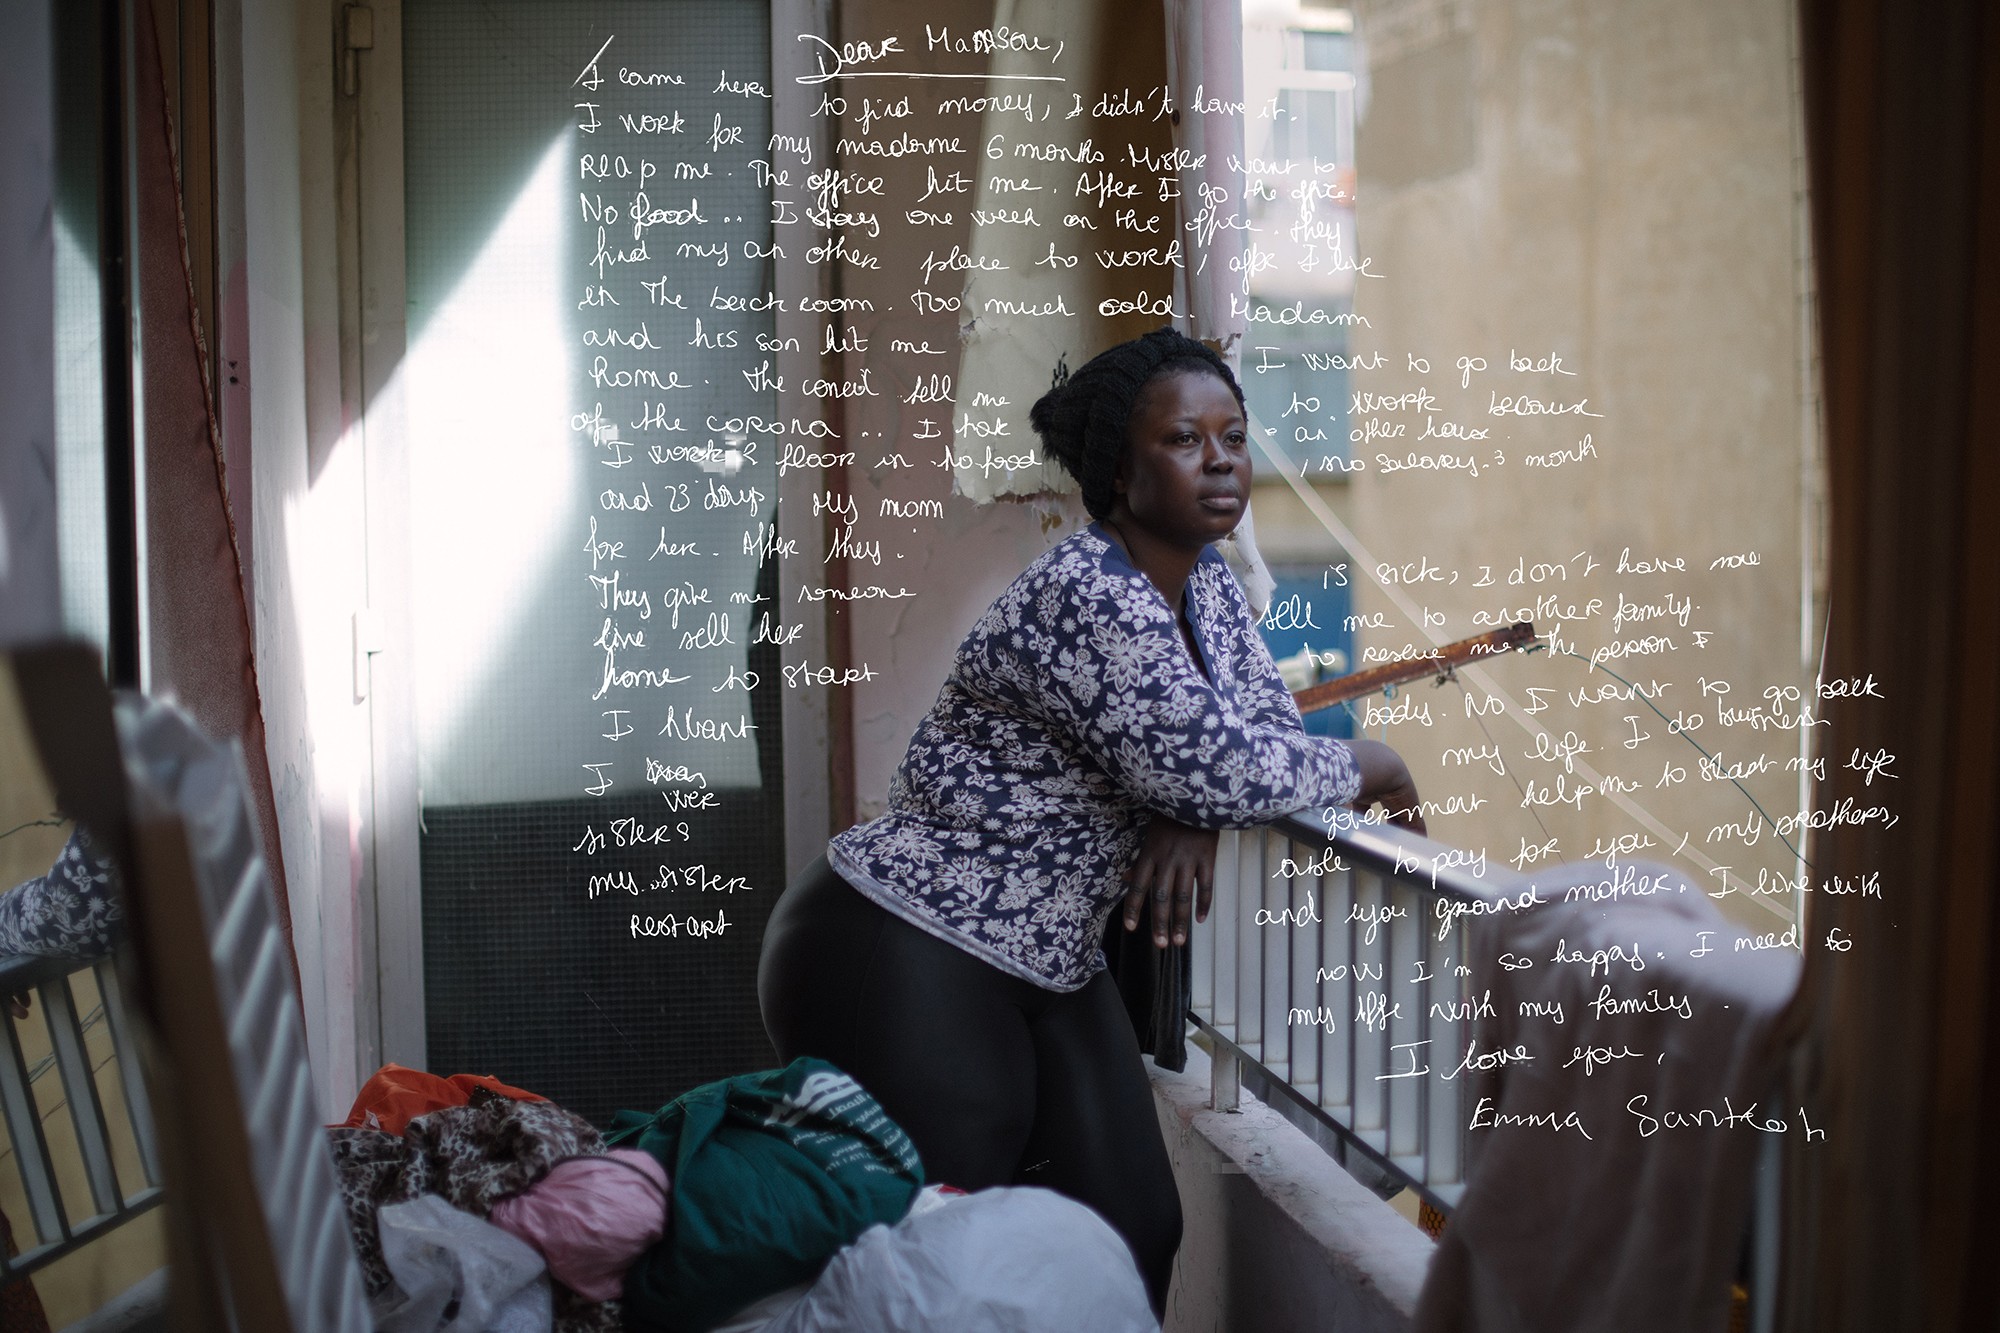 Dear
I came here to find money, I didn't have it.
I work for my madame 6 months. Mister want to
REAP me. The office hit me. After I go the office.
No food .. I stay one week on the office. they
find my an other place to work, after I live
in the back room. Too much cold. Madam
and his son hit me I want to go back
home. The sell me to work because
of the corona .. I an other house.
I work 2 floor in no food , no salary. 3 month
and 23 days. My mom is sick, I don't have now
for her. After they. sell me to another family.
They give me someone to rescue me. The person I
live sell her body. No I want to go back
home to start my life. I do business
I Want government help me to start my life
I was able to pay for you, my brothers,
Wer
sisters and you grand mother. I live with
my sister now I'm so happy. I need to
restart my life with my family.
I love you,
Emma